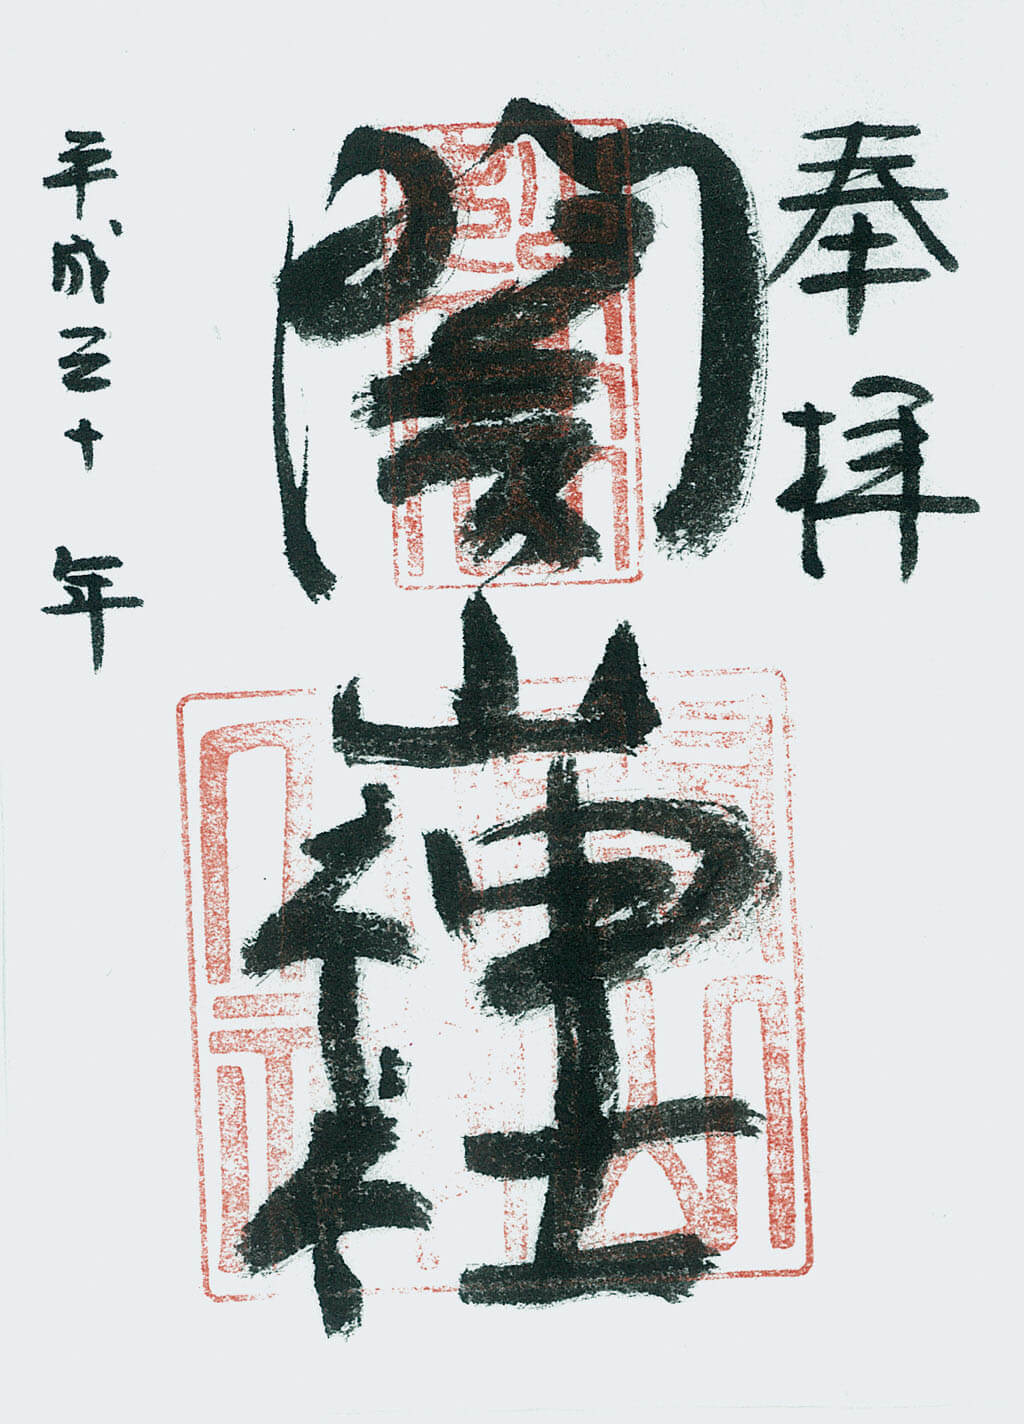 奉拝
関山神社
平成三十 年